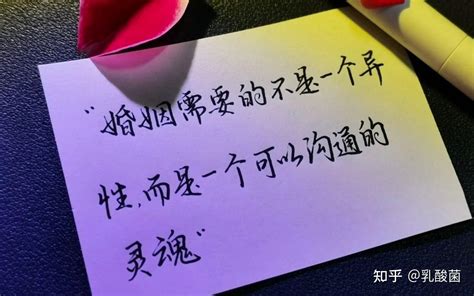 “婚姻需要的不是一个异
性,而是一个可以沟通的
灵魂”
知乎 @乳酸菌